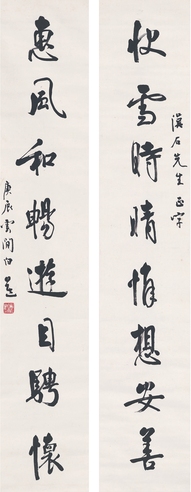 快雪時晴懷想安善
漢石先生正字
惠風和暢遊目騁懷
庚辰雪澗白蕉